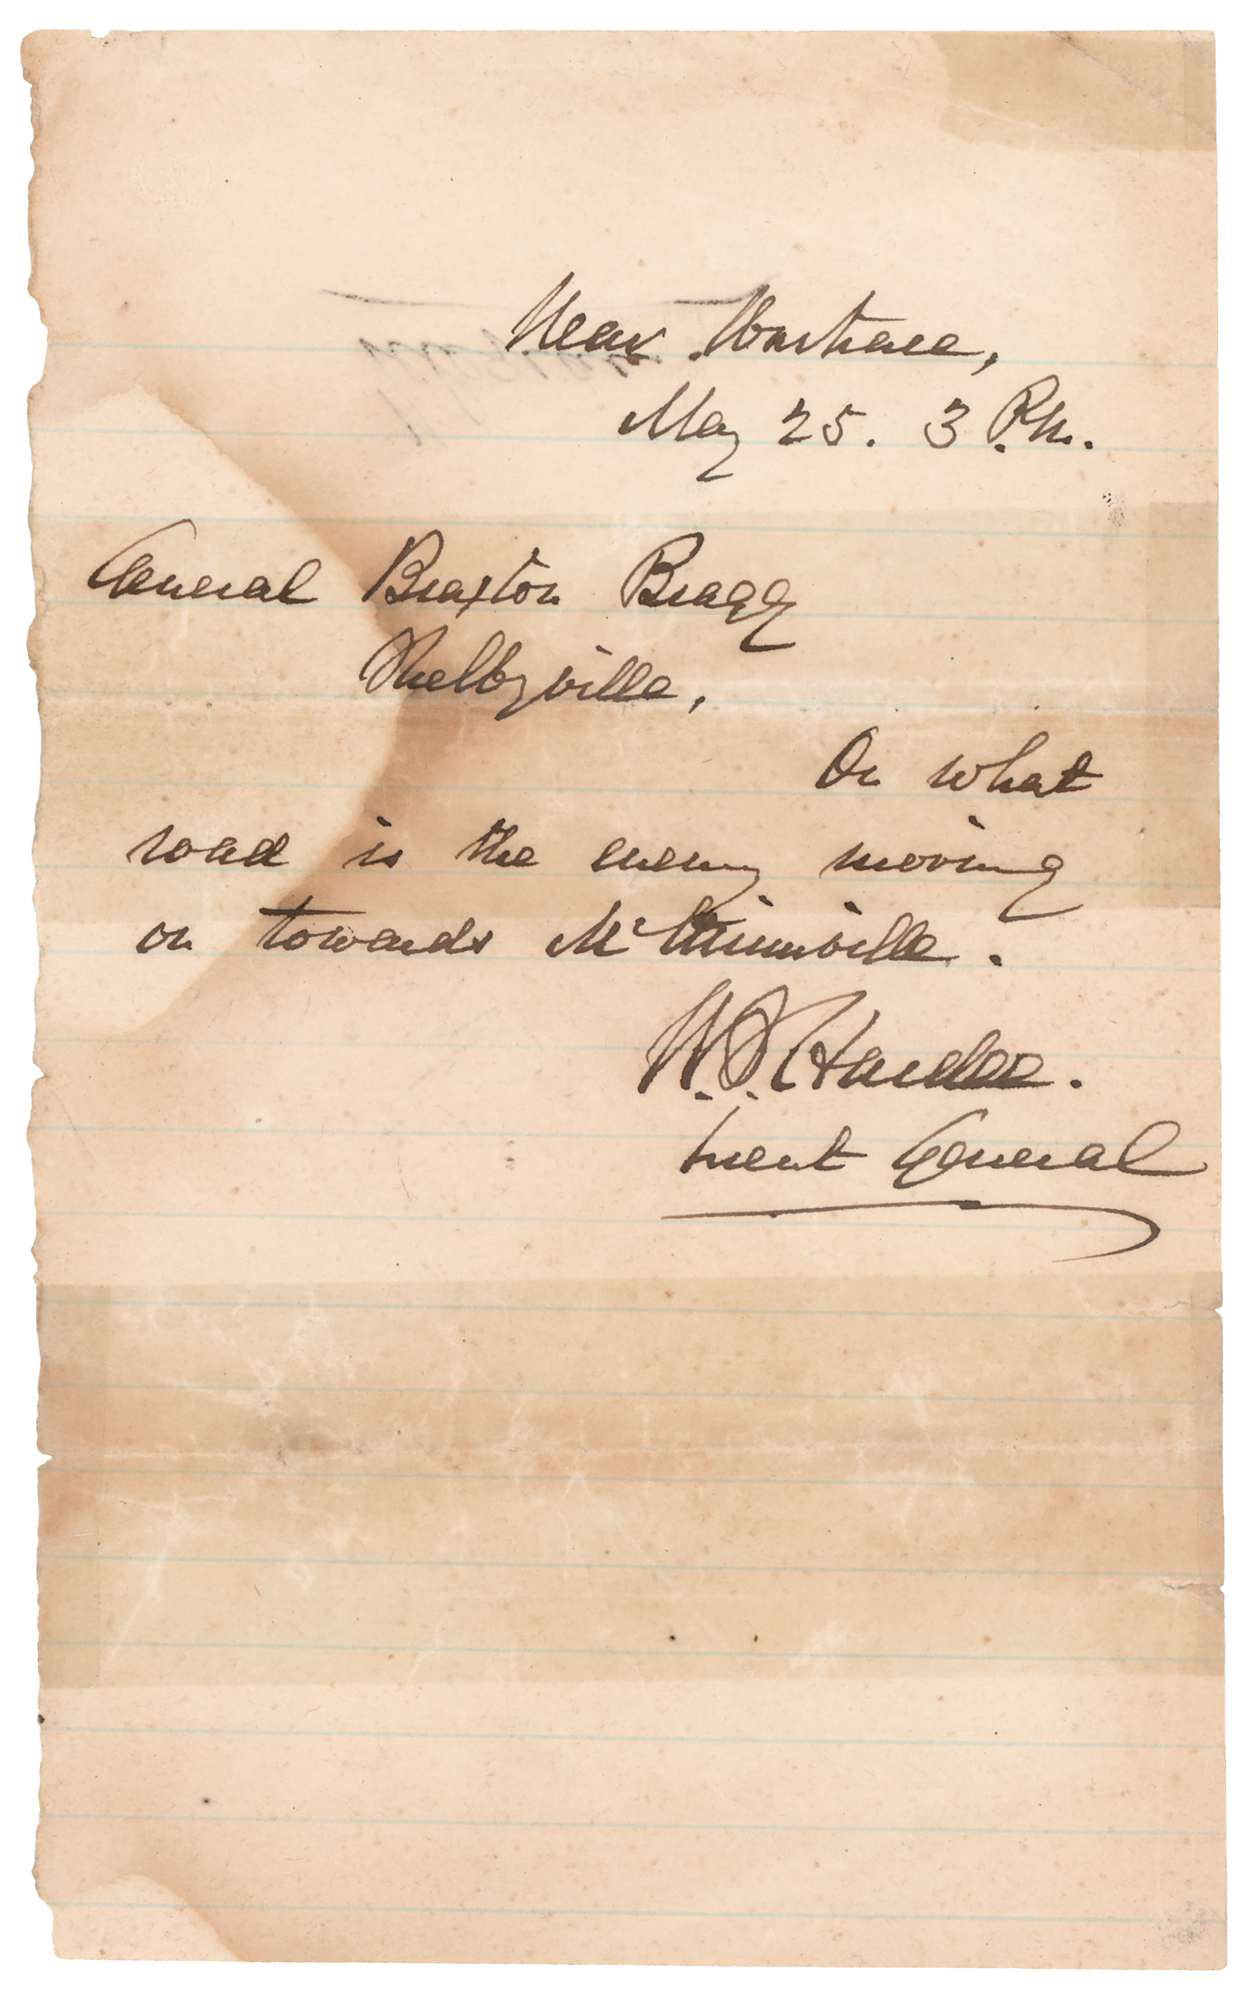 Near Wartrace,
May 25. 3 P.M.
General Braxton Bragg
Shelbyville,
On what
road is the enemy moving
on towards McMinnville.
W.J. Hardee.
Lieut General